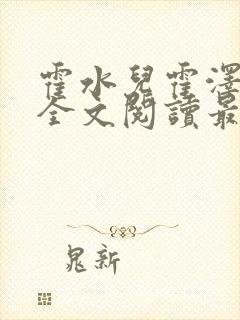 霍水兒霍澤
全文閱讀最
晁新